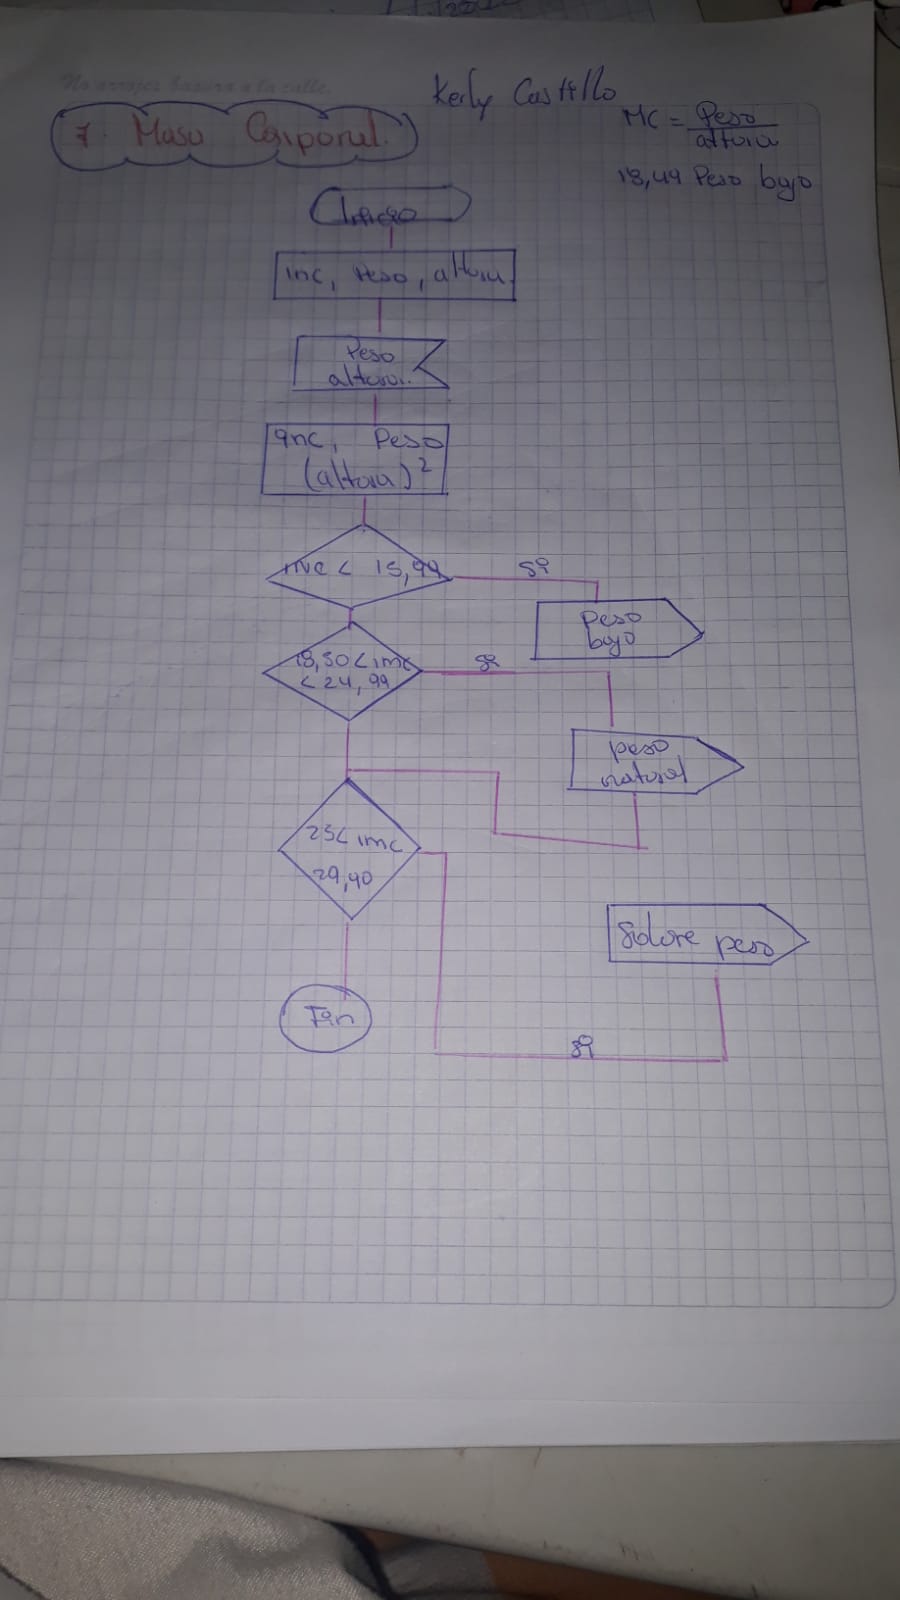 No arrojes basura a la calle.
Kerly Castillo
7. Masa Corporal.
MC = Peso
altura
18,49 Peso bajo
Inicio
imc, Peso, altura
Peso
altura..
imc, Peso
(altura)²
imc < 18,49
si
Peso
bajo
18,50 < imc
< 24,99
si
peso
natural
25 < imc
29,90
Sobre peso
Fin
si